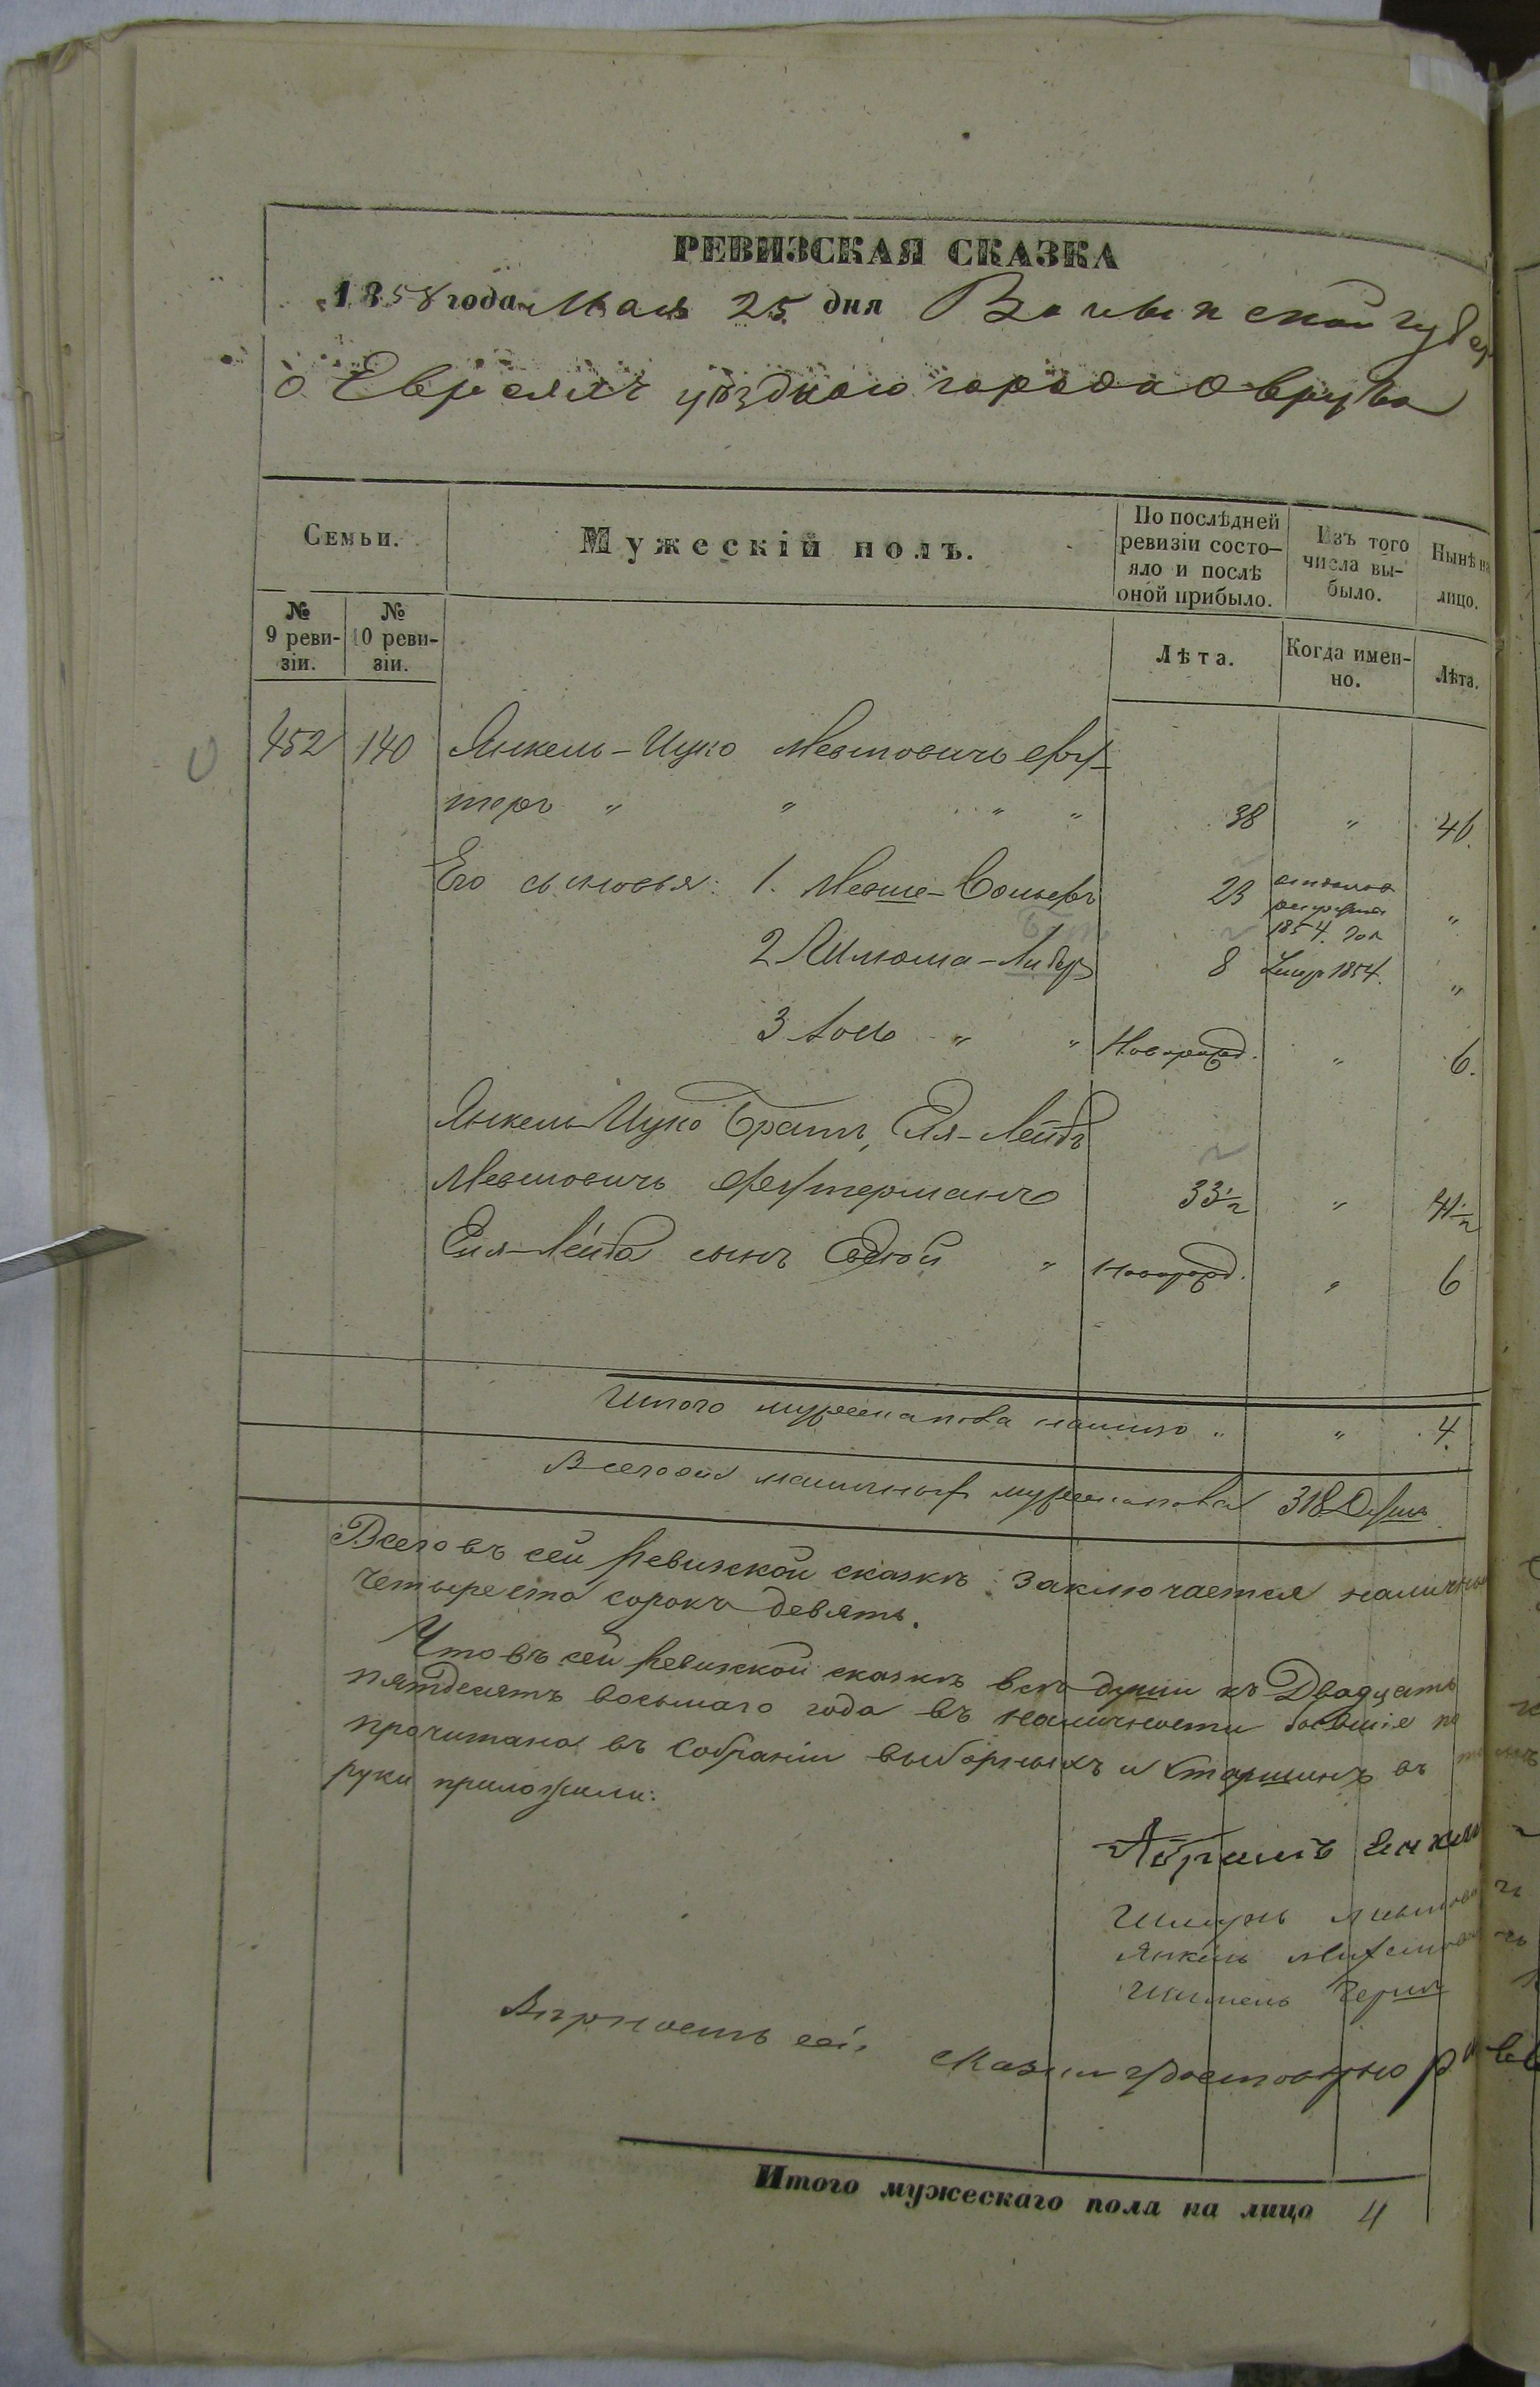 РЕВИЗСКАЯ СКАЗКА
1858 года Мая 25 дня Волынской губер
о Евреяхъ уѣзднаго города Овруча
Семьи.
Мужескій полъ.
По послѣдней ревизіи состо-
яло и послѣ
оной прибыло.
Изъ того
числа вы-
было.
Нынѣ на
лицо.
№
9 реви-
зіи.
№
10 реви-
зіи.
Лѣта.
Когда имен-
но.
Лѣта.
452 140 Янкель-Ицко Мевшовичъ
" " " " 38 " 46.
Его сыновья: 1. Мевше- 23 1854. "
2 8 Умеръ 1854. "
3 " " Новорожд. " 6.
Янкель Ицко братъ, Еля-Лейбъ
Мевшовичъ 33½ " 41½
Еля-Лейба сынъ " Новорожд. " 6
Итого мужеска пола налицо " " 4.
Всего наличныхъ мужеска пола 318 Душъ
Всего въ сей ревизской сказкѣ заключается наличны
четыреста сорокъ девять.
Что въ сей ревизской сказкѣ всѣ души къ Двадцать
пятдесятъ восьмаго года въ наличности бывшіе по
прочитана въ собраніи выборныхъ и старшинъ въ
руки приложили:
Абрамъ
Шмуль
Янкель
Вѣрность сей сказки удостовѣряю
Итого мужескаго пола на лицо 4